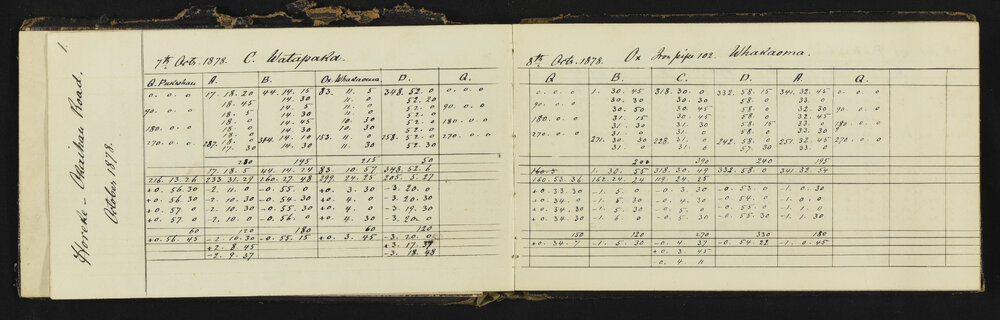 1.
Horeke - Okaihau Road.
October 1878.
7th Octr. 1878. C. Watapaka.
Q. Pukehau A. B. Ox. Whakaoma. D. Q.
0. 0. 0 17. 18. 20 44. 14. 15 83. 11. 5 348. 52. 0 0. 0. 0
18. 45 14. 30 11. 0 52. 20
90. 0. 0 18. 5 14. 30 11. 0 52. 0 90. 0. 0
18. 0 14. 45 10. 30 52. 0
180. 0. 0 18. 0 14. 30 10. 30 52. 0 180. 0. 0
18. 0 14. 30 11. 0 52. 0
270. 0. 0 287. 18. 0 314. 14. 30 153. 11. 0 258. 52. 0 270. 0. 0
17. 30 14. 30 11. 30 52. 30
280 195 215 50
17. 18. 5 44. 14. 24 83. 10. 57 348. 52. 6
216. 13. 26 233. 31. 29 260. 27. 48 299. 24. 25 205. 5. 27
+0. 56. 30 -2. 11. 0 -0. 55. 0 +0. 3. 30 -3. 20. 0
+0. 56. 30 -2. 10. 0 -0. 54. 0 +0. 4. 0 -3. 20. 0
+0. 57. 0 -2. 10. 0 -0. 55. 0 +0. 4. 0 -3. 19. 30
+0. 57. 0 -2. 10. 0 -0. 56. 0 +0. 4. 30 -3. 20. 0
60 120 180 60 120
+0. 56. 45 -2. 10. 30 -0. 55. 15 +0. 3. 45 -3. 20. 0
+2. 8. 45 +3. 17. 39
-2. 9. 37 -3. 18. 48
8th Octr. 1878. Ox Iron pipe 102. Whakaoma.
Q B. C. D. A. Q.
0. 0. 0 1. 30. 45 318. 30. 0 332. 58. 15 341. 32. 45 0. 0. 0
30. 30 30. 30 58. 0 33. 0
90. 0. 0 30. 50 30. 45 58. 0 32. 30 90. 0. 0
180. 0. 0 31. 15 30. 45 58. 0 32. 45 180. 0. 0
31. 30 31. 0 58. 15 33. 0
270. 0. 0 31. 0 31. 0 58. 0 33. 0 270. 0. 0
271. 30. 30 228. 31. 0 242. 58. 0 251. 32. 45
31. 0 31. 0 57. 30 33. 0
200 390 240 195
1. 30. 55 318. 30. 49 332. 58. 0 341. 32. 54
160. 53. 36 162. 24. 24 119. 24. 25
+0. 33. 30 -1. 5. 0 -0. 3. 30 -0. 53. 0 -1. 0. 30
+0. 34. 0 -1. 5. 30 -0. 4. 0 -0. 54. 0 -1. 0. 0
+0. 34. 30 -1. 5. 30 -0. 5. 0 -0. 55. 0 -1. 0. 30
+0. 34. 30 -1. 6. 0 -0. 5. 0 -0. 55. 30 -1. 1. 0
150 120 270 330 180
+0. 34. 7 -1. 5. 30 -0. 4. 37 -0. 54. 22 -1. 0. 45
+0. 3. 45
-0. 4. 11